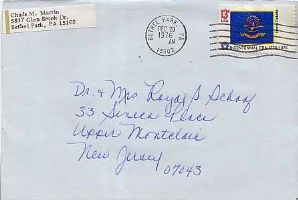 Chads M. Martin
5817 Glen Brook Dr.
Bethel Park, PA 15102
BETHEL PARK PA
DEC 29
AM
1976
15102
13c
BICENTENNIAL ERA 1776-1976
Dr. & Mrs Royal S Schaaf
33 Seneca Place
Upper Montclair
New Jersey
07043